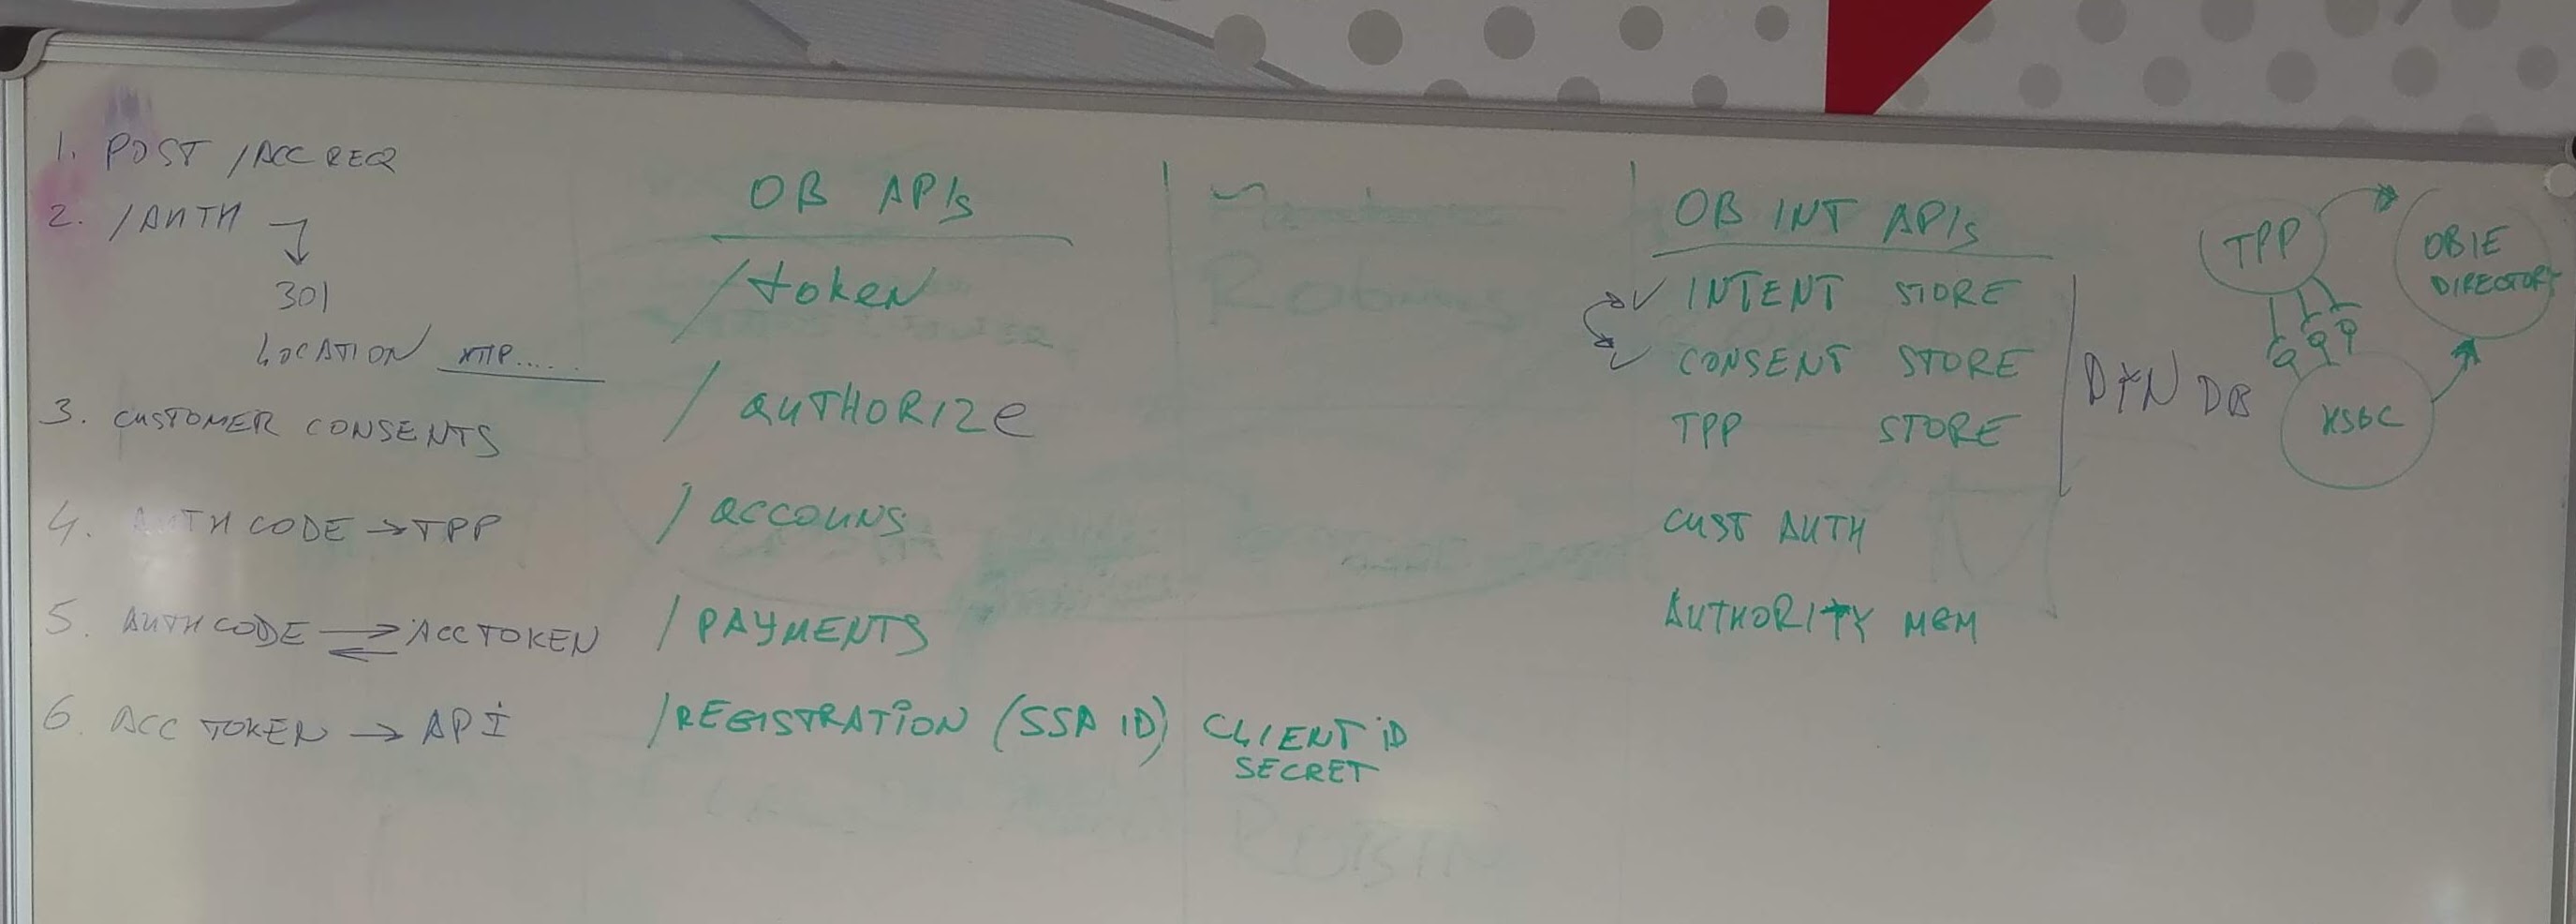 1. POST /ACC REQ
2. /AUTH
301
LOCATION HTTP.....
3. CUSTOMER CONSENTS
4. AUTH CODE → TPP
5. AUTH CODE ⇄ ACC TOKEN
6. ACC TOKEN → API
OB APIs
/token
/ AUTHORIZE
/ ACCOUNS
/ PAYMENTS
/REGISTRATION (SSA ID) CLIENT ID
SECRET
OB INT APIs
INTENT STORE
CONSENT STORE
TPP STORE
CUST AUTH
AUTHORITY MGM
DYN DB
TPP
OBIE
DIRECTORY
HSBC